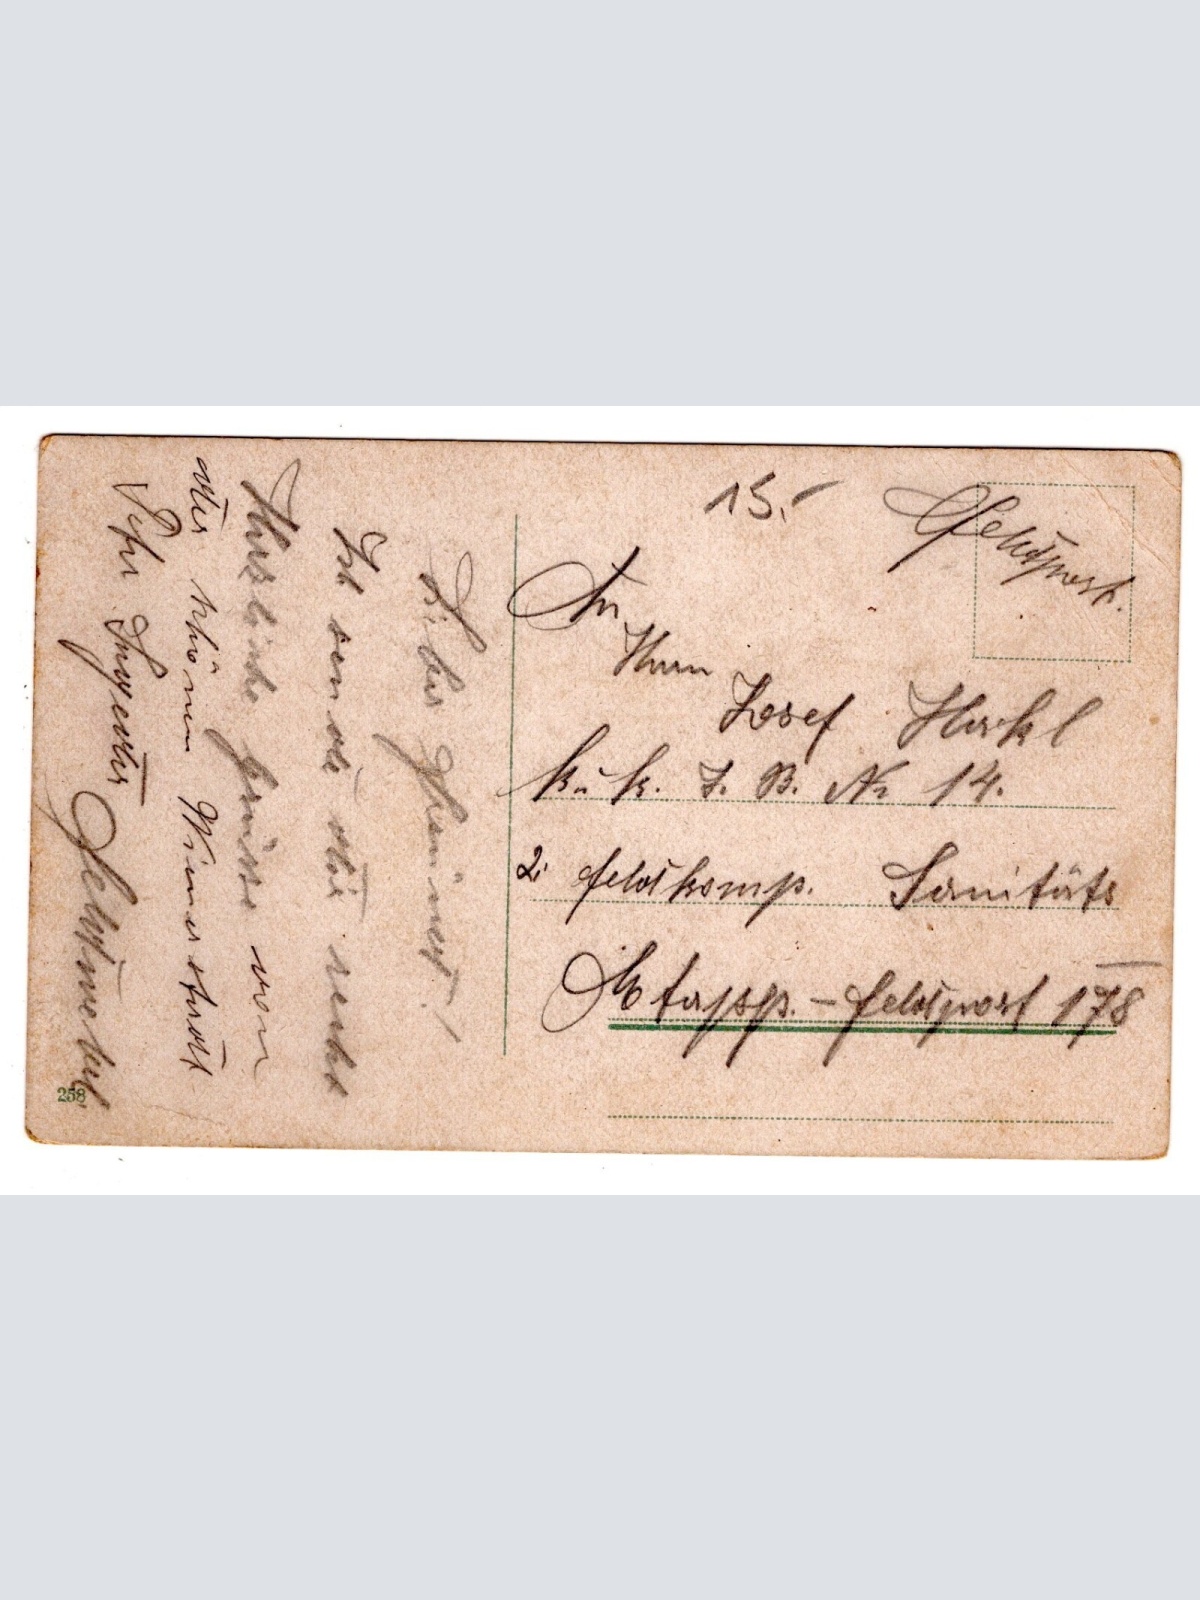 15.-
Feldpost.
An
Herrn
Josef Hackl
k. u. k. I. B. Nr 14.
2. Feldkomp. Sanitäts
Etapp. - Feldpost 178
Lieber Heinrich!
Ich sende dir recht
Herzliche Grüsse von
der schönen Wienerstadt
Dein
258